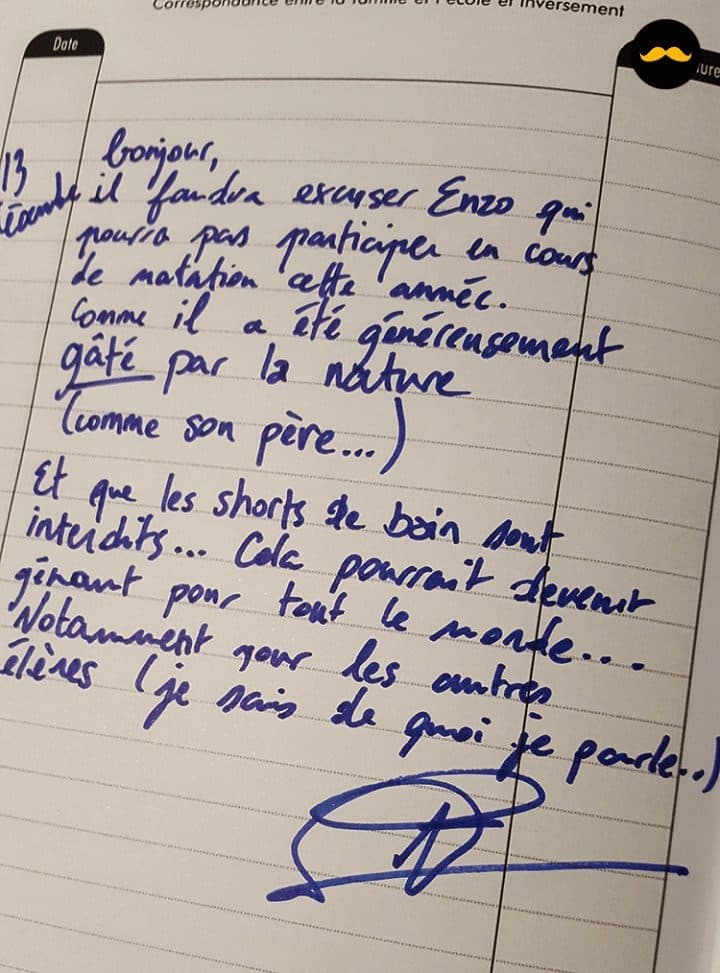 Correspondance entre la famille et l'école et inversement
Date
ure
13
bonjour,
il faudra excuser Enzo qui
pourra pas participer en cours
de natation cette année.
Comme il a été généreusement
gâté par la nature
(comme son père...)
Et que les shorts de bain sont
interdits... Cela pourrait devenir
gênant pour tout le monde....
Notamment pour les autres
élèves (je sais de quoi je parle..)